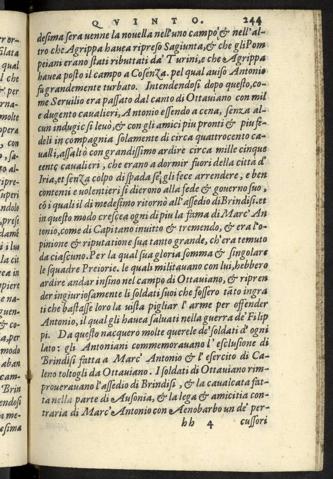 QVINTO. 244
desima sera uenne la nouella nell'uno campo, & nell'al-
tro che Agrippa hauea ripreso Sagiunta, & che gli Pom
peiani erano stati ributtati da' Turini, e che Agrippa
hauea posto il campo a Cosenza. pel qual auiso Antonio
fu grandemente turbato. Intendendosi dopo questo, co-
me Seruilio era passato dal canto di Ottauiano con mil
e dugento cauallieri, Antonio essendo a cena, senza al-
cun indugio si leuò, & con gli amici piu pronti & piu fe-
deli in compagnia solamente di circa quattrocento ca-
ualli, assaltò con grandissimo ardire circa mille cinque
cento cauallieri, che erano a dormir fuori della città d'
Iria, et senza colpo di spada se gli fece arrendere, e ben
contenti e uolentieri si dierono alla fede & gouerno suo,
cō i quali il dì medesimo ritornò all'assedio di Brindisi. et
in questo modo cresceua ogni dì piu la fama di Marc'An
tonio, come di Capitano inuitto & tremendo, & era l'o-
pinione & riputatione sua tanto grande, ch'era temuto
da ciascuno. Per la qual sua gloria somma & singolare
le squadre Preiorie. le quali militauano con lui, hebbero
ardire andar insino nel campo di Ottauiano, & riprẽ
der ingiuriosamente li soldati suoi che fossero tāto ingra
ti che bastasse loro la uista pigliar l'arme per offender
Antonio, il qual gli hauea saluati nella guerra de' Filip
pi. Da questo nacquero molte querele de' soldati d'ogni
lato: gli Antoniani commemorauano l'esclusione di
Brindisi fatta a Marc' Antonio & l'esercito di Ca-
leno toltogli da Ottauiano. I soldati di Ottauiano rim-
prouerauano l'assedio di Brindisi, & la caualcata fat-
ta nella parte di Ausonia, & la lega & amicitia con-
traria di Marc'Antonio con Aenobarbo un de' per-
hh 4 cussori